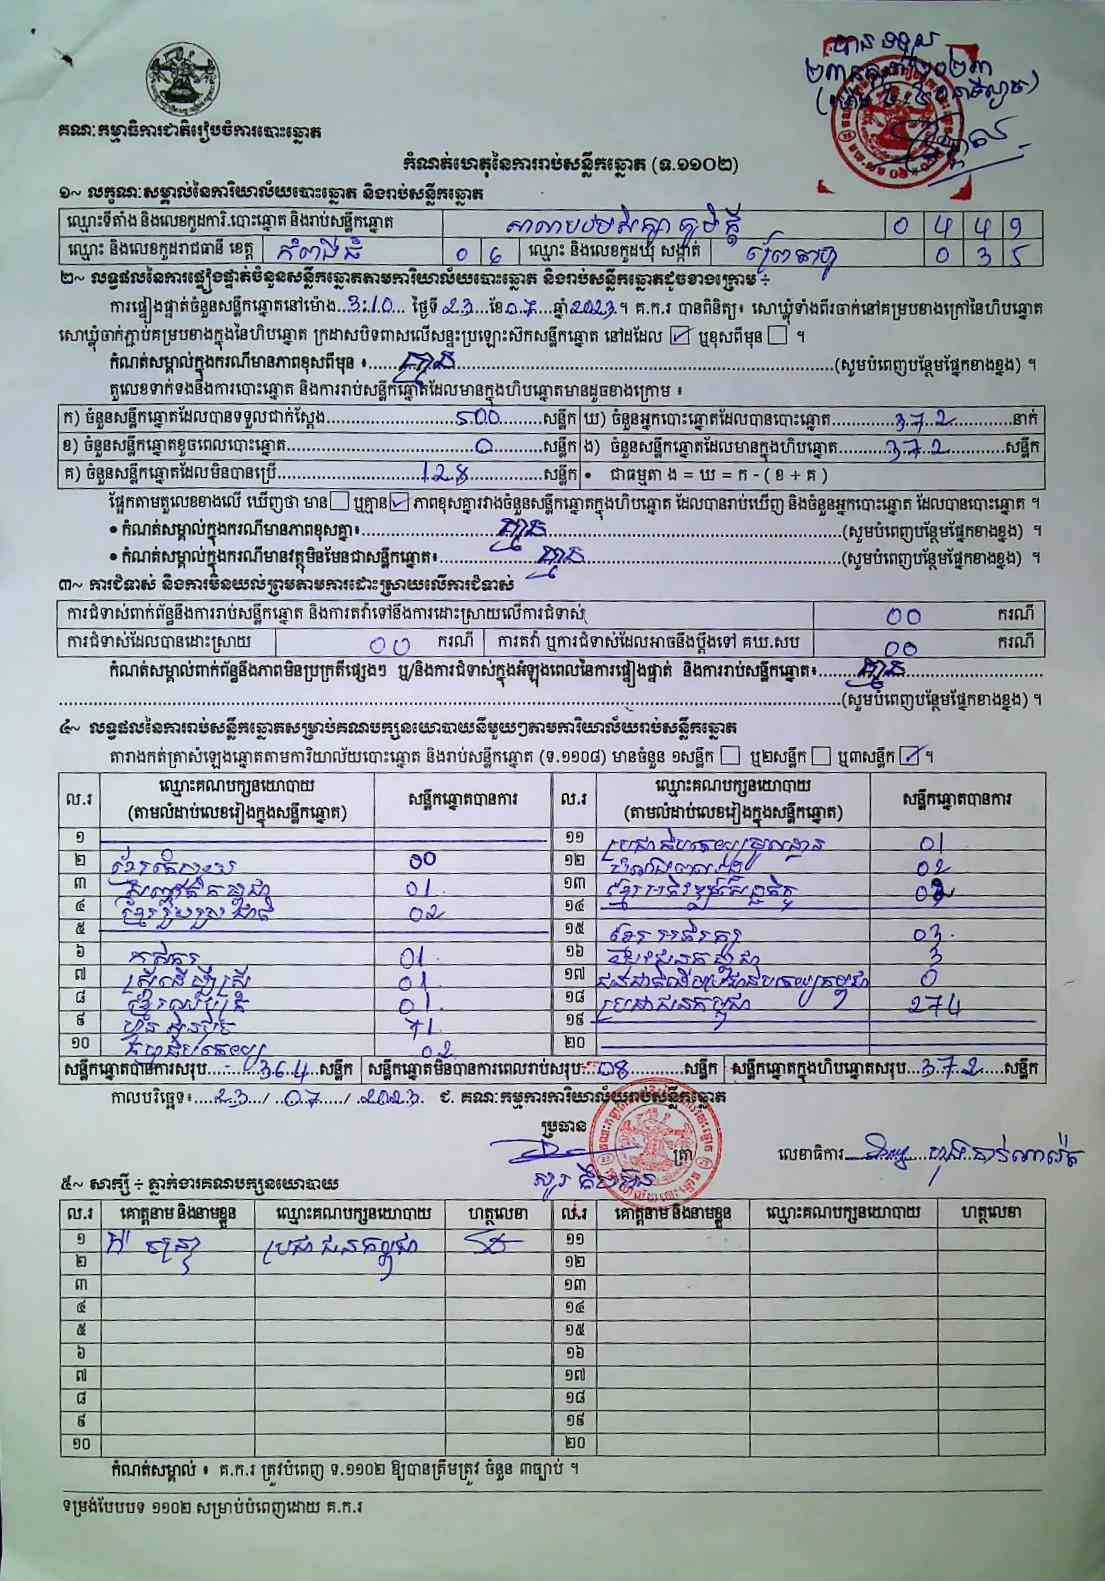 បានទទួល
គណៈកម្មាធិការជាតិរៀបចំការបោះឆ្នោត
កំណត់ហេតុនៃការរាប់សន្លឹកឆ្នោត (ទ.១១០២)
១~ លក្ខណៈសម្គាល់នៃការិយាល័យបោះឆ្នោត និងរាប់សន្លឹកឆ្នោត
ឈ្មោះទីតាំង និងលេខកូដការិ.បោះឆ្នោត និងរាប់សន្លឹកឆ្នោត សាលាបឋមសិក្សា ភូមិថ្មី 0 4 4 9
ឈ្មោះ និងលេខកូដរាជធានី ខេត្ត កំពង់ធំ 0 6 ឈ្មោះ និងលេខកូដឃុំ សង្កាត់ 0 3 5
២~ លទ្ធផលនៃការផ្ទៀងផ្ទាត់ចំនួនសន្លឹកឆ្នោតតាមការិយាល័យបោះឆ្នោត និងរាប់សន្លឹកឆ្នោតដូចខាងក្រោម ÷
ការផ្ទៀងផ្ទាត់ចំនួនសន្លឹកឆ្នោតនៅម៉ោង 3:10 ថ្ងៃទី 23 ខែ 07 ឆ្នាំ 2023 ។ គ.ក.រ បានពិនិត្យ៖ សោឃ្លុំទាំងពីរចាក់នៅគម្របខាងក្រៅនៃហិបឆ្នោត
សោឃ្លុំចាក់ភ្ជាប់គម្របខាងក្នុងនៃហិបឆ្នោត ក្រដាសបិទពាសលើសន្ទះប្រឡោះស៊កសន្លឹកឆ្នោត នៅដដែល ☑ ឬខុសពីមុន ☐ ។
កំណត់សម្គាល់ក្នុងករណីមានភាពខុសពីមុន ៖ គ្មាន (សូមបំពេញបន្ថែមផ្នែកខាងខ្នង) ។
តួលេខទាក់ទងនឹងការបោះឆ្នោត និងការរាប់សន្លឹកឆ្នោតដែលមានក្នុងហិបឆ្នោតមានដូចខាងក្រោម ៖
ក) ចំនួនសន្លឹកឆ្នោតដែលបានទទួលជាក់ស្តែង 500 សន្លឹក ឃ) ចំនួនអ្នកបោះឆ្នោតដែលបានបោះឆ្នោត 372 នាក់
ខ) ចំនួនសន្លឹកឆ្នោតខូចពេលបោះឆ្នោត 0 សន្លឹក ង) ចំនួនសន្លឹកឆ្នោតដែលមានក្នុងហិបឆ្នោត 372 សន្លឹក
គ) ចំនួនសន្លឹកឆ្នោតដែលមិនបានប្រើ 128 សន្លឹក • ជាធម្មតា ង = ឃ = ក - ( ខ + គ )
ផ្អែកតាមតួលេខខាងលើ ឃើញថា មាន ☐ ឬគ្មាន ☑ ភាពខុសគ្នារវាងចំនួនសន្លឹកឆ្នោតក្នុងហិបឆ្នោត ដែលបានរាប់ឃើញ និងចំនួនអ្នកបោះឆ្នោត ដែលបានបោះឆ្នោត ។
• កំណត់សម្គាល់ក្នុងករណីមានភាពខុសគ្នា៖ គ្មាន (សូមបំពេញបន្ថែមផ្នែកខាងខ្នង) ។
• កំណត់សម្គាល់ក្នុងករណីមានវត្ថុមិនមែនជាសន្លឹកឆ្នោត៖ គ្មាន (សូមបំពេញបន្ថែមផ្នែកខាងខ្នង) ។
៣~ ការជំទាស់ និងការមិនយល់ព្រមតាមការដោះស្រាយលើការជំទាស់
ការជំទាស់ពាក់ព័ន្ធនឹងការរាប់សន្លឹកឆ្នោត និងការតវ៉ាទៅនឹងការដោះស្រាយលើការជំទាស់ 00 ករណី
ការជំទាស់ដែលបានដោះស្រាយ 00 ករណី ការតវ៉ា ឬការជំទាស់ដែលអាចនឹងប្តឹងទៅ គឃ.សប 00 ករណី
កំណត់សម្គាល់ពាក់ព័ន្ធនឹងភាពមិនប្រក្រតីផ្សេងៗ ឬ/និងការជំទាស់ក្នុងអំឡុងពេលនៃការផ្ទៀងផ្ទាត់ និងការរាប់សន្លឹកឆ្នោត៖ គ្មាន
(សូមបំពេញបន្ថែមផ្នែកខាងខ្នង) ។
៤~ លទ្ធផលនៃការរាប់សន្លឹកឆ្នោតសម្រាប់គណបក្សនយោបាយនីមួយៗតាមការិយាល័យរាប់សន្លឹកឆ្នោត
តារាងកត់ត្រាសំឡេងឆ្នោតតាមការិយាល័យបោះឆ្នោត និងរាប់សន្លឹកឆ្នោត (ទ.១១០៨) មានចំនួន ១សន្លឹក ☐ ឬ២សន្លឹក ☐ ឬ៣សន្លឹក ☑ ។
ល.រ ឈ្មោះគណបក្សនយោបាយ (តាមលំដាប់លេខរៀងក្នុងសន្លឹកឆ្នោត) សន្លឹកឆ្នោតបានការ ល.រ ឈ្មោះគណបក្សនយោបាយ (តាមលំដាប់លេខរៀងក្នុងសន្លឹកឆ្នោត) សន្លឹកឆ្នោតបានការ
១ ១១ 01
២ 00 ១២ 02
៣ 01 ១៣
៤ ខ្មែររួបរួមជាតិ 02 ១៤
៥ ១៥ 03
៦ កសិករ 01 ១៦ 3
៧ ស្ត្រីដើម្បីស្ត្រី 01 ១៧ 0
៨ 01 ១៨ ប្រជាជនកម្ពុជា 274
៩ ហ្វ៊ុនស៊ិនប៉ិច 71 ១៩
១០ 02 ២០
សន្លឹកឆ្នោតបានការសរុប 364 សន្លឹក សន្លឹកឆ្នោតមិនបានការពេលរាប់សរុប 08 សន្លឹក សន្លឹកឆ្នោតក្នុងហិបឆ្នោតសរុប 372 សន្លឹក
កាលបរិច្ឆេទ៖ 23 / 07 / 2023 ជ. គណៈកម្មការការិយាល័យរាប់សន្លឹកឆ្នោត
ប្រធាន
ត្រា លេខាធិការ
៥~ សាក្សី ÷ ភ្នាក់ងារគណបក្សនយោបាយ
ល.រ គោត្តនាម និងនាមខ្លួន ឈ្មោះគណបក្សនយោបាយ ហត្ថលេខា ល.រ គោត្តនាម និងនាមខ្លួន ឈ្មោះគណបក្សនយោបាយ ហត្ថលេខា
១ ប្រជាជនកម្ពុជា ១១
២ ១២
៣ ១៣
៤ ១៤
៥ ១៥
៦ ១៦
៧ ១៧
៨ ១៨
៩ ១៩
១០ ២០
កំណត់សម្គាល់ ៖ គ.ក.រ ត្រូវបំពេញ ទ.១១០២ ឱ្យបានត្រឹមត្រូវ ចំនួន ៣ច្បាប់ ។
ទម្រង់បែបបទ ១១០២ សម្រាប់បំពេញដោយ គ.ក.រ